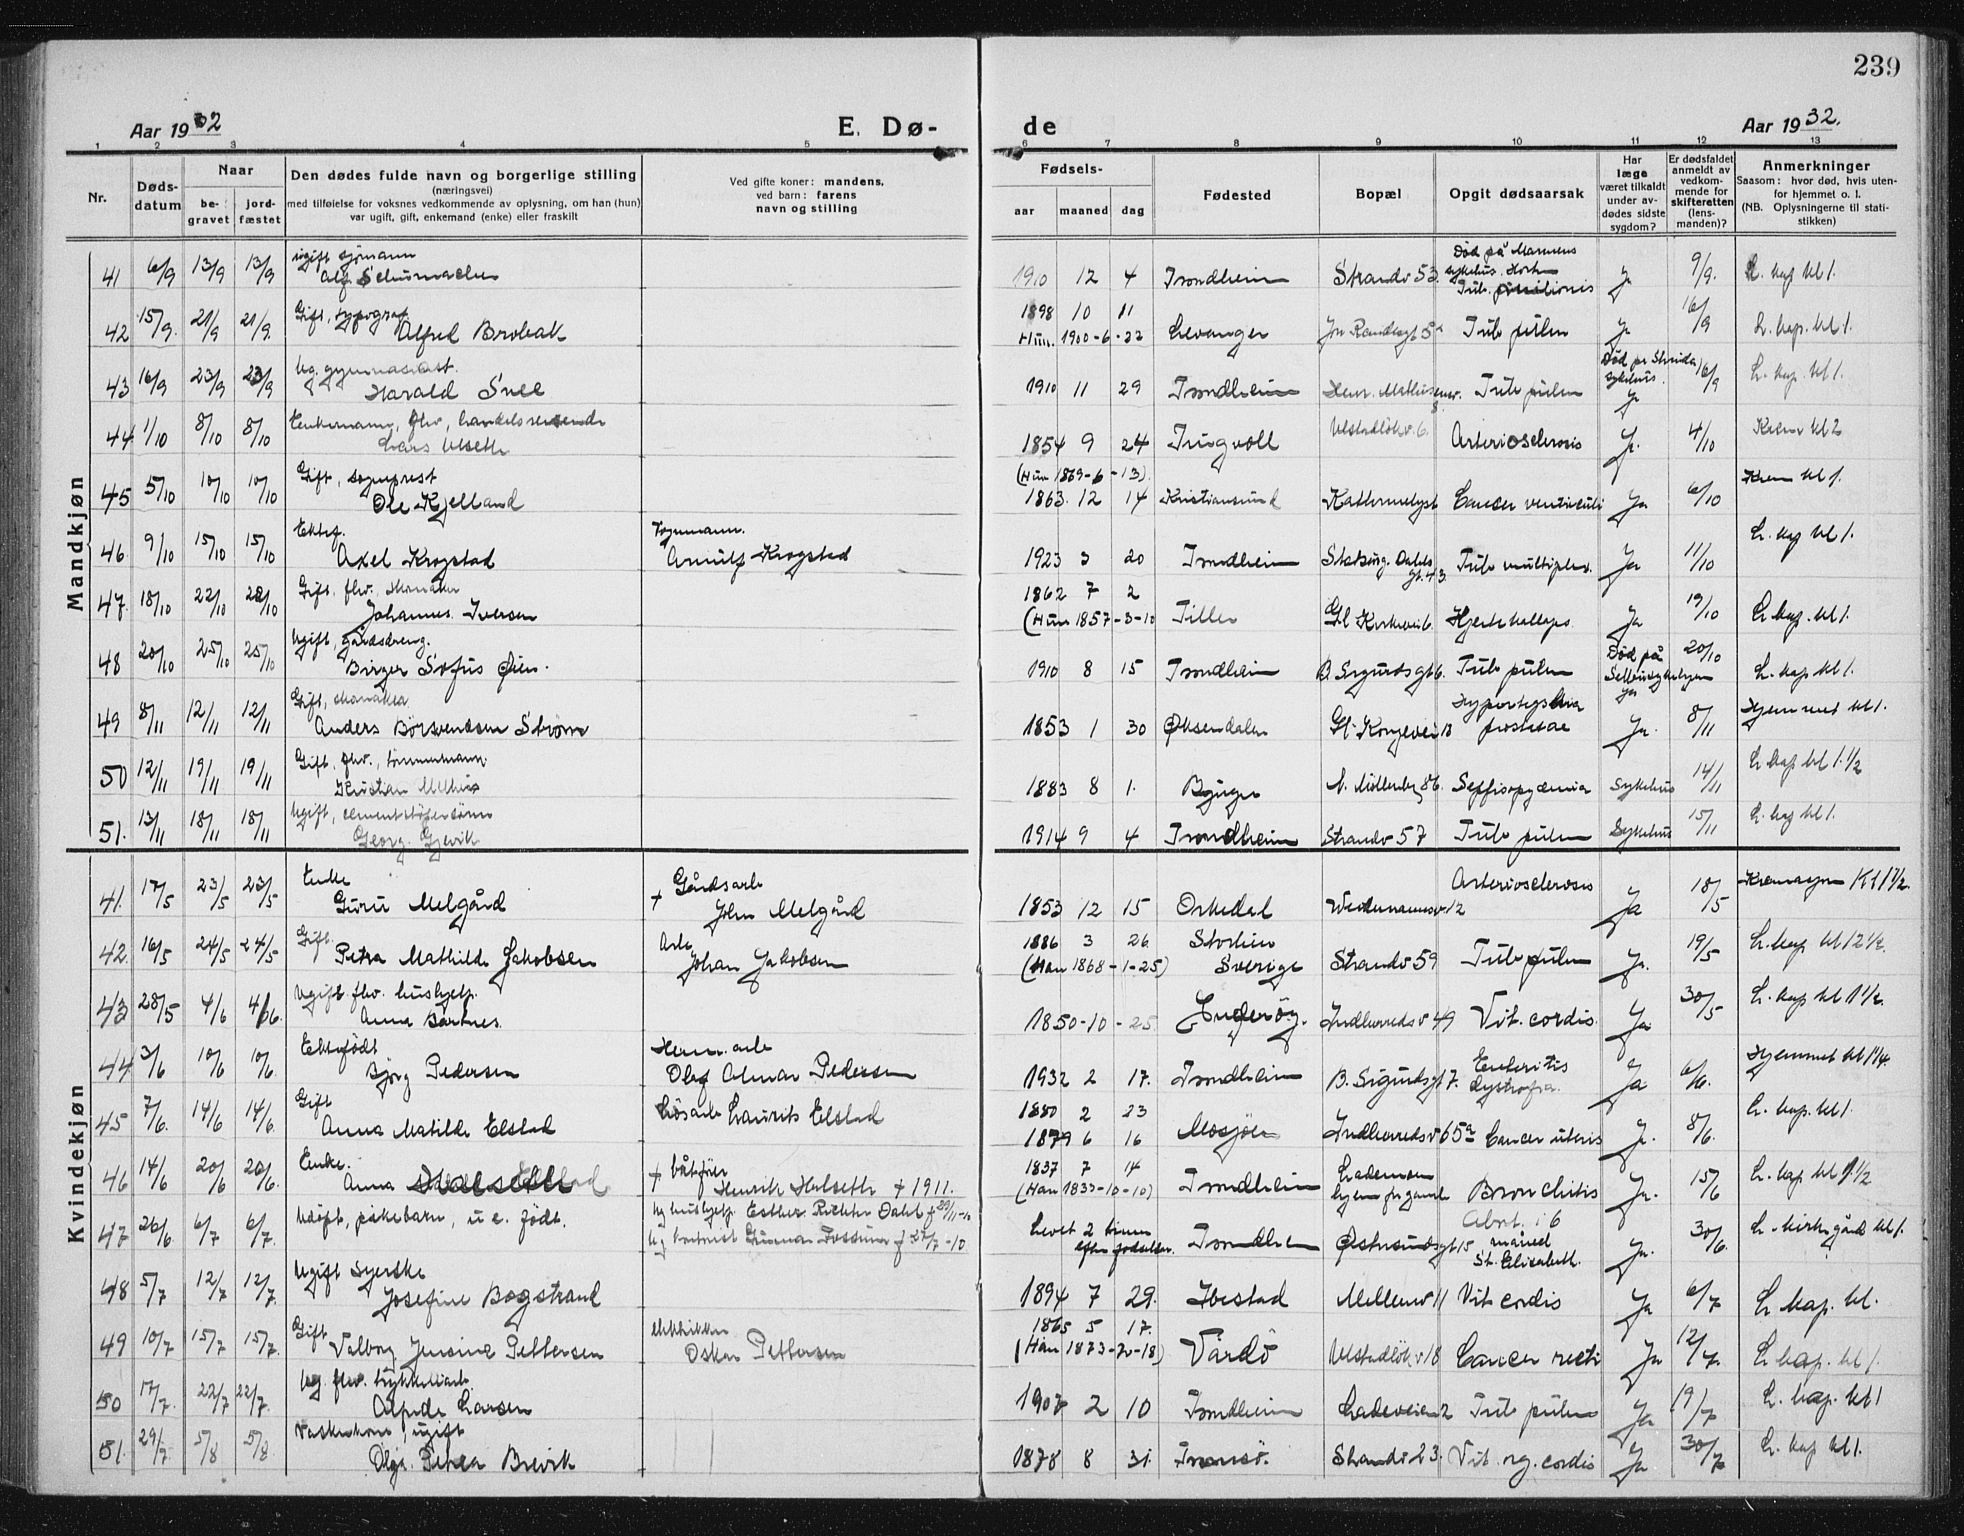 239
Aar 1932
E. Dø-
de
Aar 1932.
1 2 3 4 5 6 7 8 9 10 11 12 13
Nr.
Døds-
datum
Naar
be-
gravet
jord-
fæstet
Den dødes fulde navn og borgerlige stilling
(næringsvei)
med tilføielse for voksnes vedkommende av oplysning, om han (hun)
var ugift, gift, enkemand (enke) eller fraskilt
Ved gifte koner: mandens,
ved barn: farens
navn og stilling
Fødsels-
aar maaned dag
Fødested
Bopæl
Opgit dødsaarsak
Har
læge
været tilkaldt
under av-
dødes sidste
sygdom?
Er dødsfaldet
anmeldt av
vedkom-
mende for
skifteretten
(lens-
manden)?
Anmerkninger
Saasom: hvor død, hvis uten-
for hjemmet o. l.
(NB. Oplysningerne til stati-
stikken)
Mandkjøn
41 6/9 13/9 13/9 ugift sjømann
Alf Schumacher 1910 12 4 Trondheim Strandv 53. Død på Marinens
sykehus. Horten
Tub. Ja 9/9. L. kap kl 1.
42 15/9. 21/9 21/9. Gift, typograf
Alfred Brobak 1898 10 11
Hun. 1900-6-22 Levanger Tub pulm Ja 16/9 L. kap. kl 1.
43 16/9 23/9 23/9 Ug. gymnasiast.
Harald Snee 1910 11 29 Trondheim Tub pulm Død på
sykehus.
Ja 16/9 L. kap. kl 1.
44 1/10 8/10 8/10 Enkemann, fhv. handelsreisende
Lars Ulseth 1854 9 24 Tingvoll Ulstadløkv. 6. Arteriosclerosis Ja. 4/10 Krem kl 2
45 5/10 10/10 10/10 Gift, sogneprest
Ole Kjelland (Hun 1869-6-13)
1863. 12 14 Kristiansund Cancer ventriculi Ja 6/10 Krem kl 1.
46 9/10 15/10 15/10 Ektef.
Axel Krogstad
Arnulf Krogstad 1923 3 20 Trondheim Tub multiplex. Ja 11/10 L. kap kl 1.
47. 18/10 22/10 22/10 Gift, fhv. skomaker
Johannes Iversen 1862 7 2
(Hun 1857-3-10 Tiller Gl Kirkevei 6. Hjertekollaps. Ja 19/10 L kap. kl 1.
48 20/10 25/10 25/10 Ugift, gårdsdreng.
Birger Sofus Øien. 1910 8 15 Trondheim B. Sigurdsgt 6. Tub pulm Død på
Ja 20/10 L. kap kl 1.
49 8/11 12/11 12/11 Gift, skomaker
Anders Børsvendsen Strøm 1853 1 30 Øksendalen Gl. Kongevei 18 prostatae Ja. 8/11 Hjemmet kl 1.
50 12/11 19/11 19/11 Gift, fhv., tømmermann
Kristian Melhus 1883 8 1. Bjugn N. Møllenberg 86. Sepsisopyæmia Sykehus 14/11 L kap kl 1 1/2
51. 13/11 18/11 18/11 Ugift,
Georg. Gjevik 1914 9 4 Trondheim Strandv 57 Tub pulm Sykehus 15/11 L. kap kl 1.
Kvindekjøn
41. 17/5 23/5 23/5 Enke
Guru Melgård
+ Gårdsarb
John Melgård 1853 12 15 Orkedal Weidemannsv 12 Arteriosclerosis Ja 18/5 Kremasjon Kl 1 1/2.
42. 16/5 24/5 24/5 Gift.
Petra Mathilde Jakobsen
Arb.
Johan Jakobsen 1886 3 26
(Han 1868-1-25) Sverige Strandv 59 Tub pulm Ja. 19/5 L. kap kl 12 1/2.
43 28/5 4/6 4/6. Ugift. fhv. hushjelp.
Anna Bartnes. 1850-10-25 Inderøy. Indherredsv 49 Vit. cordis. Ja 30/5 L. kap kl 1 1/2.
44 3/6 10/6 10/6 Ektefødt
Bjørg Pedersen
Herm. arb
Olaf Almar Pedersen 1932 2 17. Trondheim B. Sigurdsgt 7. Enteritis
dystrofia. Ja 6/6. Hjemmet kl 1 1/4.
45 7/6. 14/6 14/6 Gift
Anna Matilde Elstad
Løsarb Laurits Elstad 1880 2 23
1879 6 16 Mosjøen Indherredsv 65a Cancer uteris Ja. 8/6. L. kap. kl 1.
46 14/6 20/6 20/6. Enke.
Anna
+ båtfører
Henrik Halseth + 1911. 1837 7 14
(Han 1833-10-10) Trondheim Lademoen
hjem for gamle Bronchitis Ja. 15/6 L. kap kl 1 1/2
47 26/6 6/7 6/7. Udøpt, pikebarn, u e. født.
Ug hushjelp Esther Richter Dahl f 29/11-10
Ug kontorist Gunnar Fossum f 27/7-10 Levet 2 timer
efter fødselen. Trondheim Østersundsgt 15 Abort. i 6
måned
St. Elisabeth. Ja. 30/6. L. kirkegård kl 1.
48 5/7 12/7 12/7. Ugift syerske
Josefine Bogstrand 1894 7 29. Ibestad Mellemv 11 Vit cordis Ja 6/7 L kap. kl.
49 10/7 15/7 15/7. Gift
Valborg Jensine Pettersen
Oskar Pettersen 1865 5 17.
(Han 1873-2-18) Vardø Ulstadløkv 18 Cancer recti Ja 12/7. L kap. kl 1.
50 17/7. 22/7 22/7. Ug. fhv.
Alfhilde Larsen 1907 2 10 Trondheim Ladeveien 2 Tub pulm Ja 19/7 L. kap. kl 1
51. 29/7 5/8 5/8. Vaskekone, ugift
Olga Petrea Brevik 1878 8 31. Tromsø. Strandv 23. Vit. org. cordis Ja 30/7 L. kap kl 1.